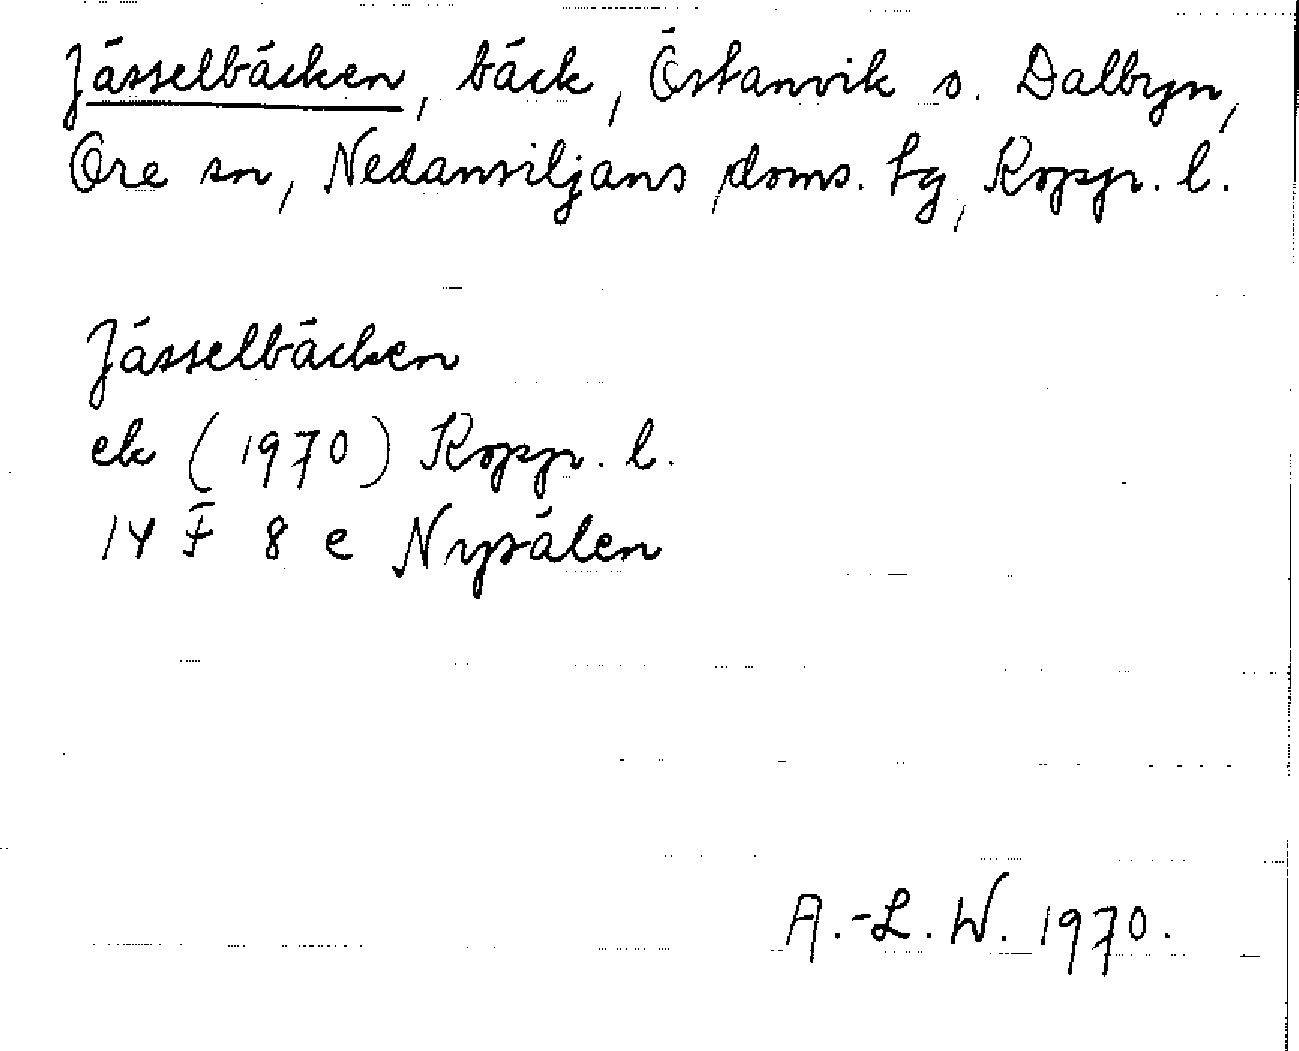 Jässelbäcken, bäck, Östanvik s. Dalbyn,
Ore sn, Nedansiljans doms. tg, Kopp. l.
Jässelbäcken
ek (1970) Kopp. l.
14 F 8 e Nysälen
A.-L. W. 1970.